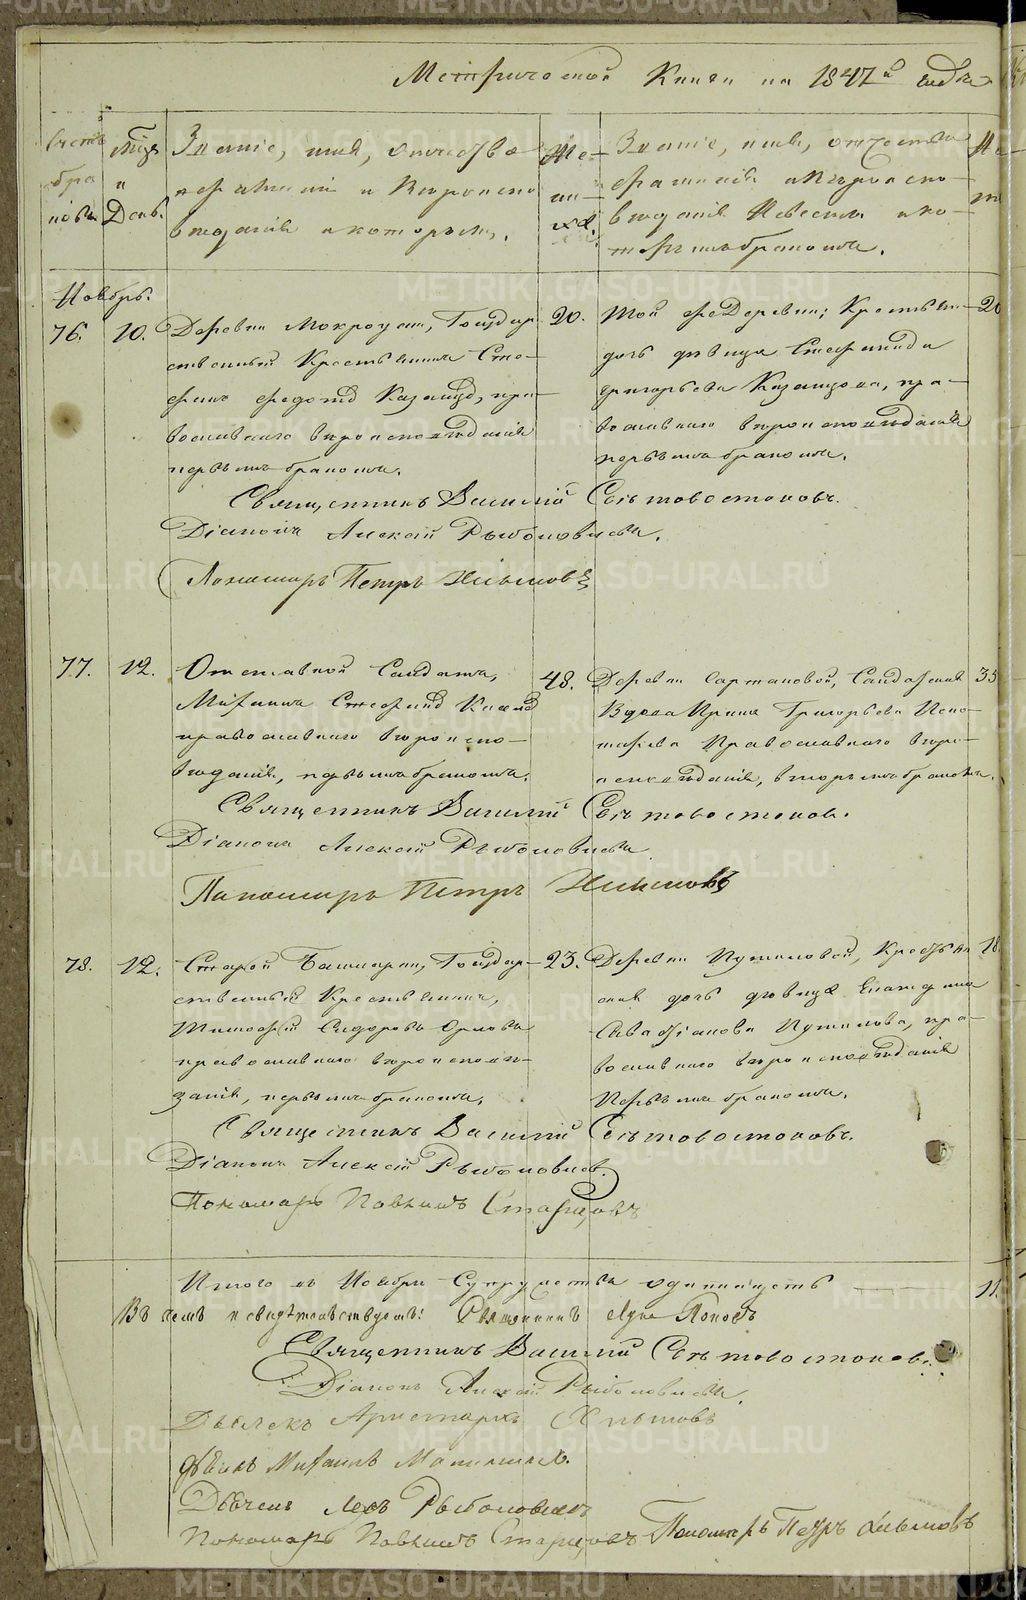 Метрической Книги на 1847й годъ
Счетъ браковъ
Мѣсяцъ и День.
Званіе, имя, отчество
фамилія и вѣроиспо
вѣданія и которымъ.
Званіе, имя, отчество
фамилія и вѣроиспо-
вѣданія Невесты и ко-
торымъ бракомъ.
Ноябрь.
76. 10.
Деревни Государ
ственный Крестьянинъ Сте-
фанъ Казанцо, пра-
вославнаго вѣроисповѣданія
первымъ бракомъ.
20.
Той же Деревни; Крестьян
дочь дѣвица Степанида
Григорьева Казанцова, пра-
вославнаго вѣроисповѣданія
первымъ бракомъ.
20
Священникъ Василій Свѣтовостоковъ.
Діаконъ Алексѣй Рыболовлевъ.
Пономарь Петръ Хлыновъ
77. 12.
Отставной Солдатъ,
православнаго вѣроиспо-
вѣданія, первымъ бракомъ.
48.
Деревни Солдатская
Вдова Ирина Григорьева
Православнаго вѣро-
исповѣданія, вторымъ бракомъ.
35
Священникъ Василій Свѣтовостоковъ.
Діаконъ Алексѣй Рыболовлевъ
Пономарь Петръ Хлыновъ
78. 12.
Старой Башкарки, Государ-
ственный Крестьянинъ,
Тимофѣй Сидоровъ Орловъ
православнаго вѣроисповѣ-
данія, первымъ бракомъ.
23.
Деревни Путиловой, Крестьян
ская дочь дѣвица Екатерина
Савастіанова Путилова, пра-
вославнаго вѣроисповѣданія
Первымъ бракомъ.
18.
Священникъ Василій Свѣтовостоковъ.
Діаконъ Алексѣй Рыболовлевъ.
Пономарь Старцовъ
Итого въ Ноябрѣ Супружества одинадцать
11.
Въ чемъ и свидѣтельствуемъ: Священникъ Поповъ
Священникъ Василій Свѣтовостоковъ.
Діаконъ Алексѣй Рыболовлевъ.
Дьячекъ Аристархъ Хлыновъ
Михаилъ
Дьячекъ Левъ Рыболовлевъ
Пономарь Старцовъ Пономарь Петръ Хлыновъ
METRIKI.GASO-URAL.RU